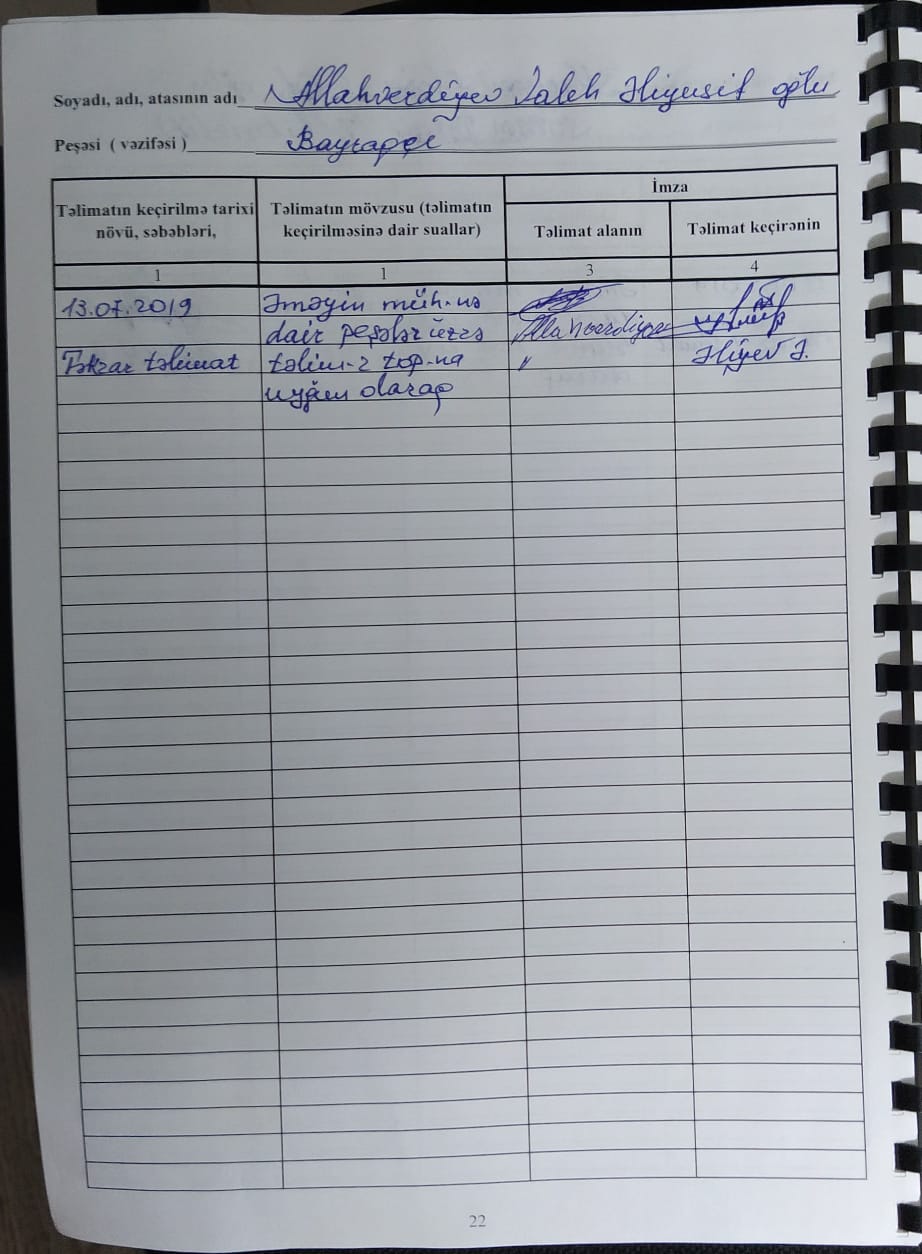 Soyadı, adı, atasının adı Allahverdiyev Saleh Əliyusif oğlu
Peşəsi ( vəzifəsi ) Bayraqçı
İmza
Təlimatın keçirilmə tarixi Təlimatın mövzusu (təlimatın
növü, səbəbləri, keçirilməsinə dair suallar) Təlimat alanın Təlimat keçirənin
1 1 3 4
13.07.2019 Əməyin müh-nə
dair peşələr üzrə Allahverdiyev
Təkrar təlimat təlim-t top-na " Əliyev Ə.
uyğun olaraq
22